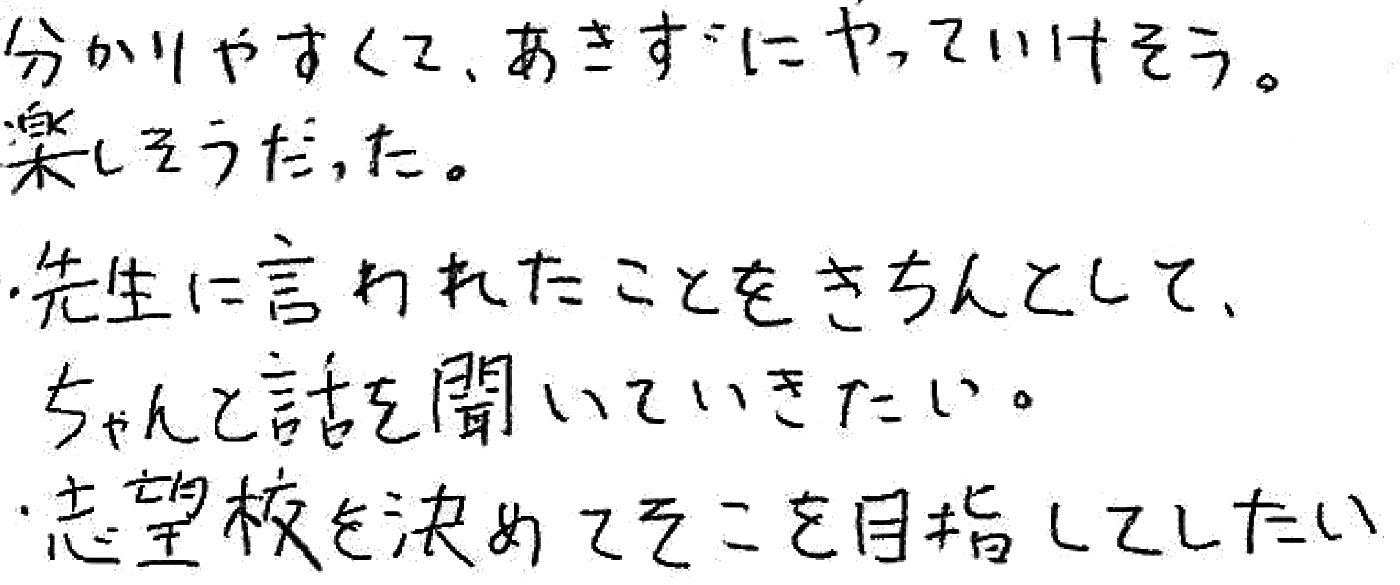 分かりやすくて、あきずにやっていけそう。
・楽しそうだった。
・先生に言われたことをきちんとして、
ちゃんと話を聞いていきたい。
・志望校を決めてそこを目指してしたい